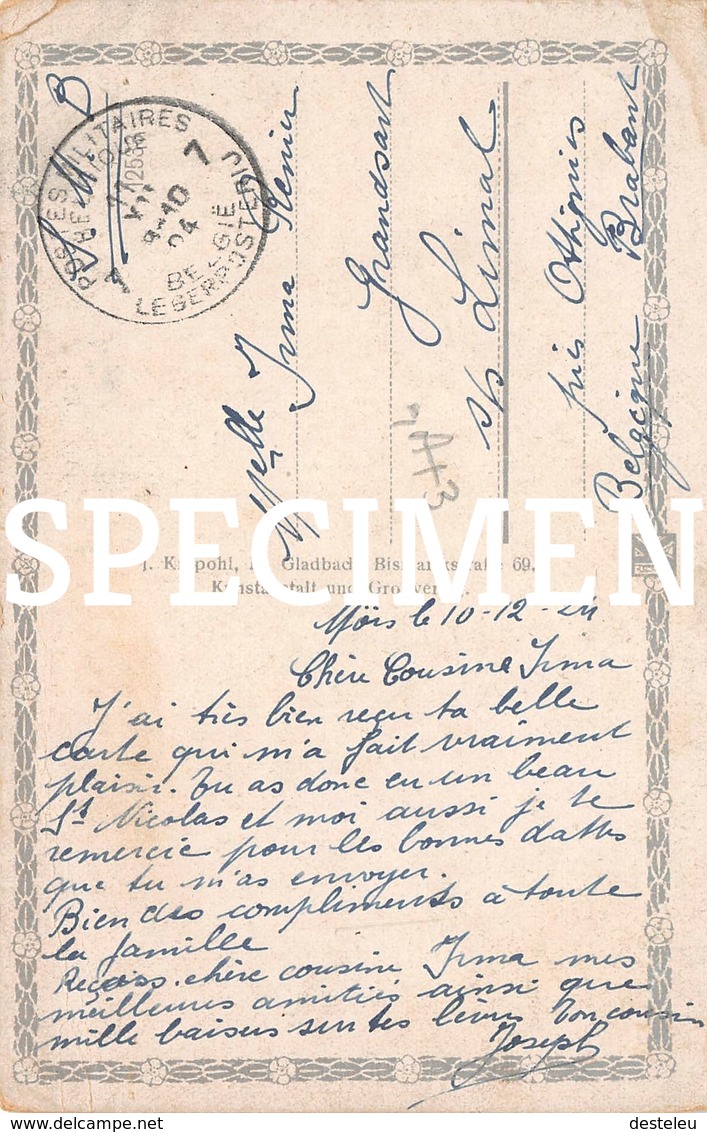 S. M. B
POSTES MILITAIRES
BELGIË
LEGERPOSTERIJ
7
Melle Irma
Grandsart
s/s Limal
près Ottignies
Brabant
Belgique
A+3
SPECIMEN
Gladbach, Bismarckstraße 69.
Kunstanstalt und
Mörs le 10-12-24
Chère Cousine Irma
J'ai très bien reçu ta belle
carte qui m'a fait vraiment
plaisir. Tu as donc eu un beau
St Nicolas et moi aussi je te
remercie pour les bonnes dattes
que tu m'as envoyer.
Bien des compliments à toute
la famille
Reçois chère cousine Irma mes
meilleures amitiés ainsi que
mille baisers sur tes lèvres Ton cousin
Joseph
desteleu